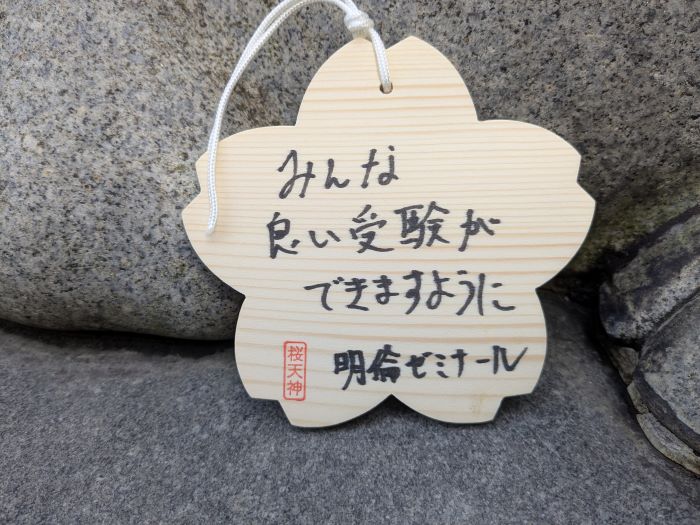 みんな
良い受験が
できますように
明倫ゼミナール
桜天神